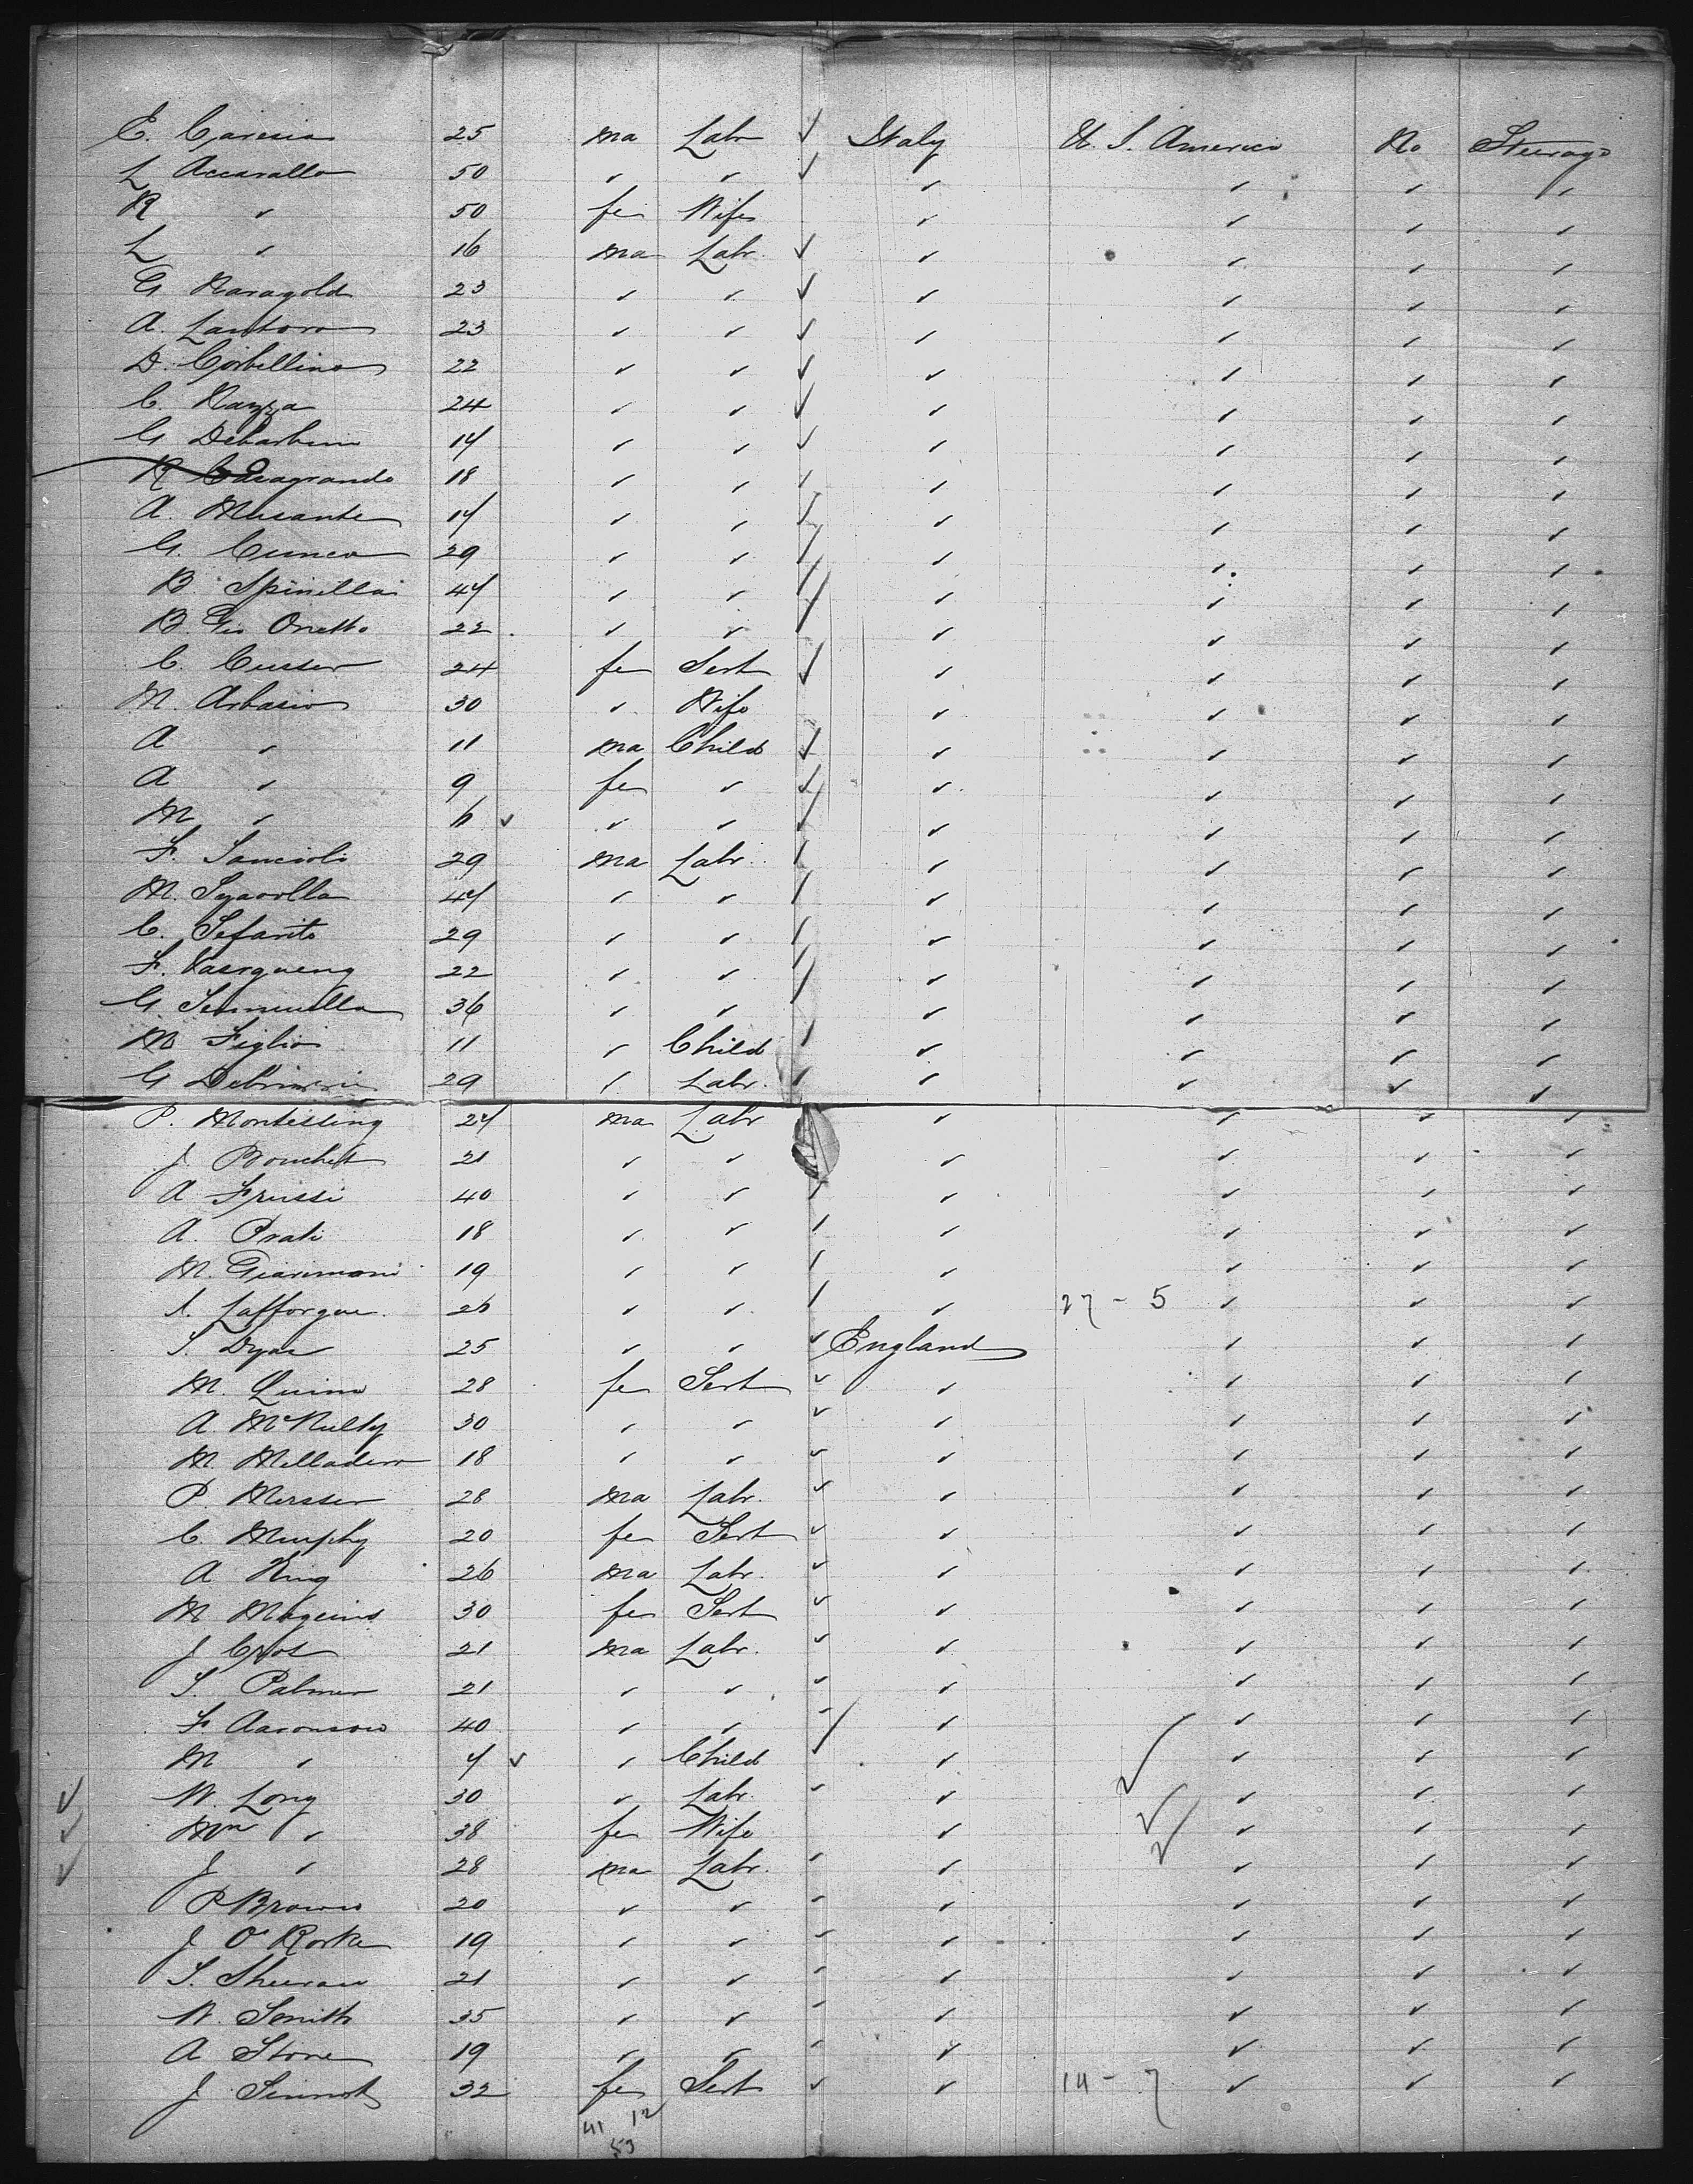 E. Caresia 25 ma Labr ✓ Italy U. S. America No Steerage
L Accarallo 50 ✓ ✓ ✓ ✓ ✓ ✓ ✓
R ✓ 50 fe Wife ✓ ✓ ✓ ✓
L ✓ 16 ma Labr. ✓ ✓ ✓ ✓ ✓
G Naragold 23 ✓ ✓ ✓ ✓ ✓ ✓ ✓
A. Lantoro 23 ✓ ✓ ✓ ✓ ✓ ✓ ✓
D. Corbellino 22 ✓ ✓ ✓ ✓ ✓ ✓ ✓
C. Razza 24 ✓ ✓ ✓ ✓ ✓ ✓ ✓
G Debarbini 14 ✓ ✓ ✓ ✓ ✓ ✓ ✓
R Casagrande 18 ✓ ✓ ✓ ✓ ✓ ✓ ✓
A. Musante 14 ✓ ✓ ✓ ✓ ✓ ✓ ✓
G. Cuneo 29 ✓ ✓ ✓ ✓ ✓ ✓ ✓
B. Spinella 44 ✓ ✓ ✓ ✓ ✓ ✓ ✓
B. Gio Onetto 22 ✓ ✓ ✓ ✓ ✓ ✓ ✓
C. Cusser 24 fe Sert ✓ ✓ ✓ ✓ ✓
M. Arbasio 30 ✓ Wife ✓ ✓ ✓ ✓
A ✓ 11 ma Child ✓ ✓ ✓ ✓ ✓
A ✓ 9 fe ✓ ✓ ✓ ✓ ✓ ✓
M ✓ 6 ✓ ✓ ✓ ✓ ✓ ✓ ✓ ✓
F. Sancioli 29 ma Labr. ✓ ✓ ✓ ✓ ✓
M. 44 ✓ ✓ ✓ ✓ ✓ ✓ ✓
C. Sefarito 29 ✓ ✓ ✓ ✓ ✓ ✓ ✓
F. 22 ✓ ✓ ✓ ✓ ✓ ✓ ✓
G. 36 ✓ ✓ ✓ ✓ ✓ ✓
M Figlio 11 ✓ Child ✓ ✓ ✓ ✓ ✓
G 29 ✓ Labr. ✓ ✓ ✓ ✓ ✓
P. Montessing 24 ma Labr ✓ ✓ ✓ ✓
J Bouchet 21 ✓ ✓ ✓ ✓ ✓ ✓
A Frussi 40 ✓ ✓ ✓ ✓ ✓ ✓ ✓
A. Prati 18 ✓ ✓ ✓ ✓ ✓ ✓ ✓
M. Giarimoni 19 ✓ ✓ ✓ ✓ ✓ ✓ ✓
Lafforgue 26 ✓ ✓ ✓ ✓ 27 - 5 ✓ ✓ ✓
S. Dyas 25 ✓ ✓ ✓ England ✓ ✓ ✓
M. Quinn 28 fe Sert ✓ ✓ ✓ ✓ ✓
A. McNulty 30 ✓ ✓ ✓ ✓ ✓ ✓ ✓
M. Melladew 18 ✓ ✓ ✓ ✓ ✓ ✓ ✓
P. Messer 28 ma Labr. ✓ ✓ ✓ ✓ ✓
C. Murphy 20 fe Sert ✓ ✓ ✓ ✓ ✓
A King 26 ma Labr. ✓ ✓ ✓ ✓ ✓
M Maguins 30 fe Sert ✓ ✓ ✓ ✓ ✓
J Cros 21 ma Labr. ✓ ✓ ✓ ✓ ✓
S. Palmer 21 ✓ ✓ ✓ ✓ ✓ ✓ ✓
F Aaronson 40 ✓ ✓ ✓ ✓ ✓ ✓ ✓
M ✓ 4 ✓ ✓ Child ✓ ✓ ✓ ✓
✓ W. Long 30 ✓ Labr. ✓ ✓ ✓ ✓ ✓ ✓
✓ Mrs ✓ 38 fe Wife ✓ ✓ ✓ ✓ ✓
✓ J ✓ 28 ma Labr. ✓ ✓ ✓ ✓ ✓ ✓
P Brown 20 ✓ ✓ ✓ ✓ ✓ ✓ ✓
J O'Rorke 19 ✓ ✓ ✓ ✓ ✓ ✓ ✓
S. Sheeran 21 ✓ ✓ ✓ ✓ ✓ ✓ ✓
W. Smith 35 ✓ ✓ ✓ ✓ ✓ ✓ ✓
A Stone 19 ✓ ✓ ✓ ✓ ✓ ✓ ✓
J Sinnot 32 fe Sert ✓ ✓ 14 - 7 ✓ ✓ ✓
41 12
53